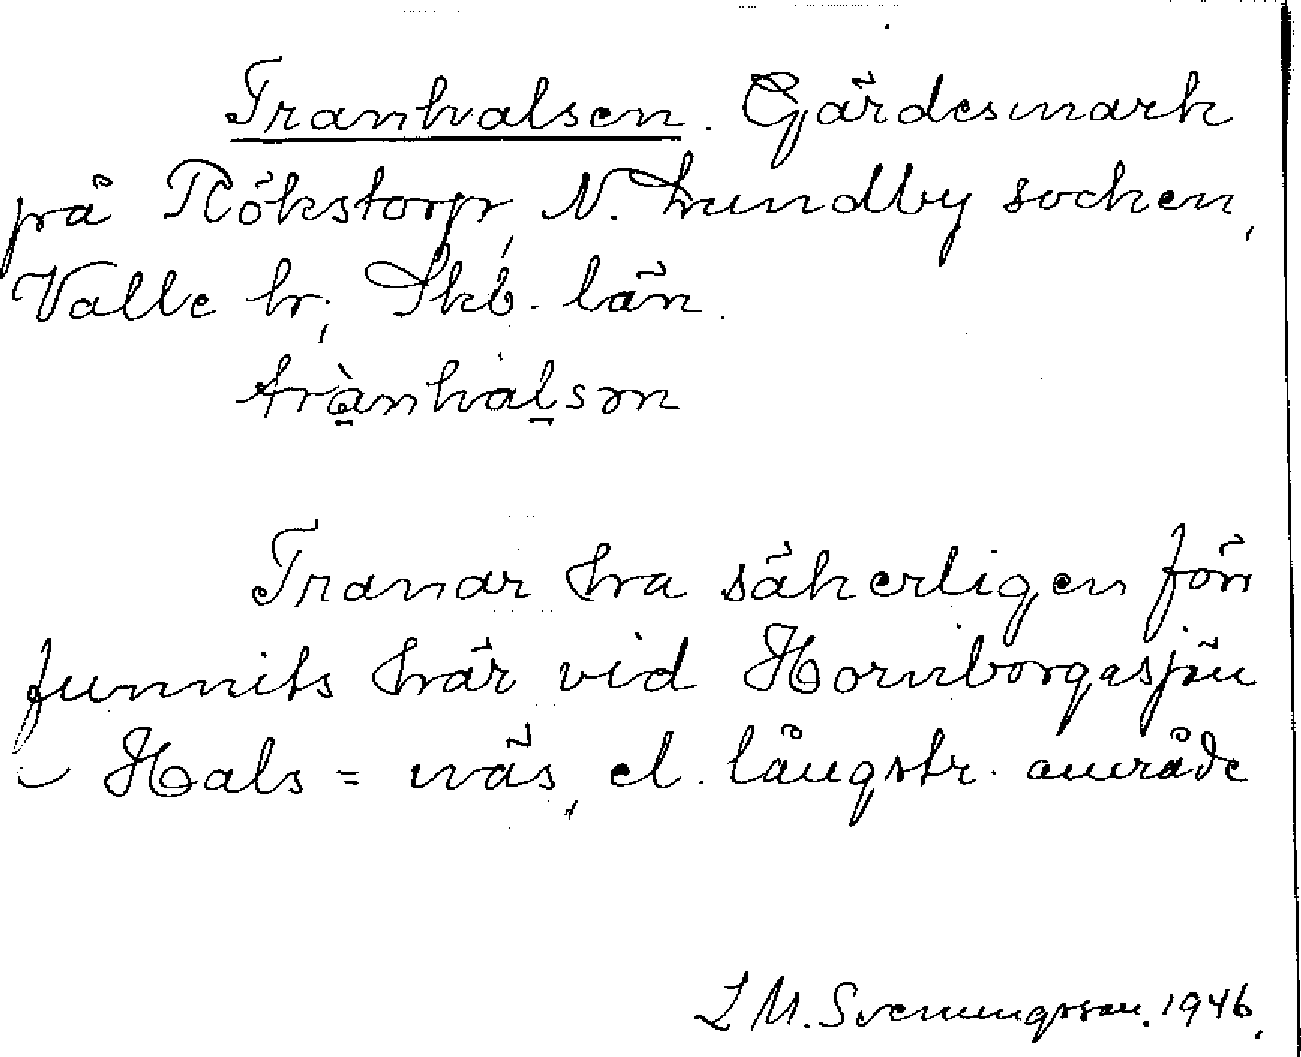 Tranhalsen. Gärdesmark
på Rökstorp, N. Lundby socken,
Valle hr, Skb. län.
trànhalsən
Tranar ha säkerligen förr
funnits här vid Hornborgasjön
Hals = näs, el. långstr. område
L M. Svenungsson. 1946.